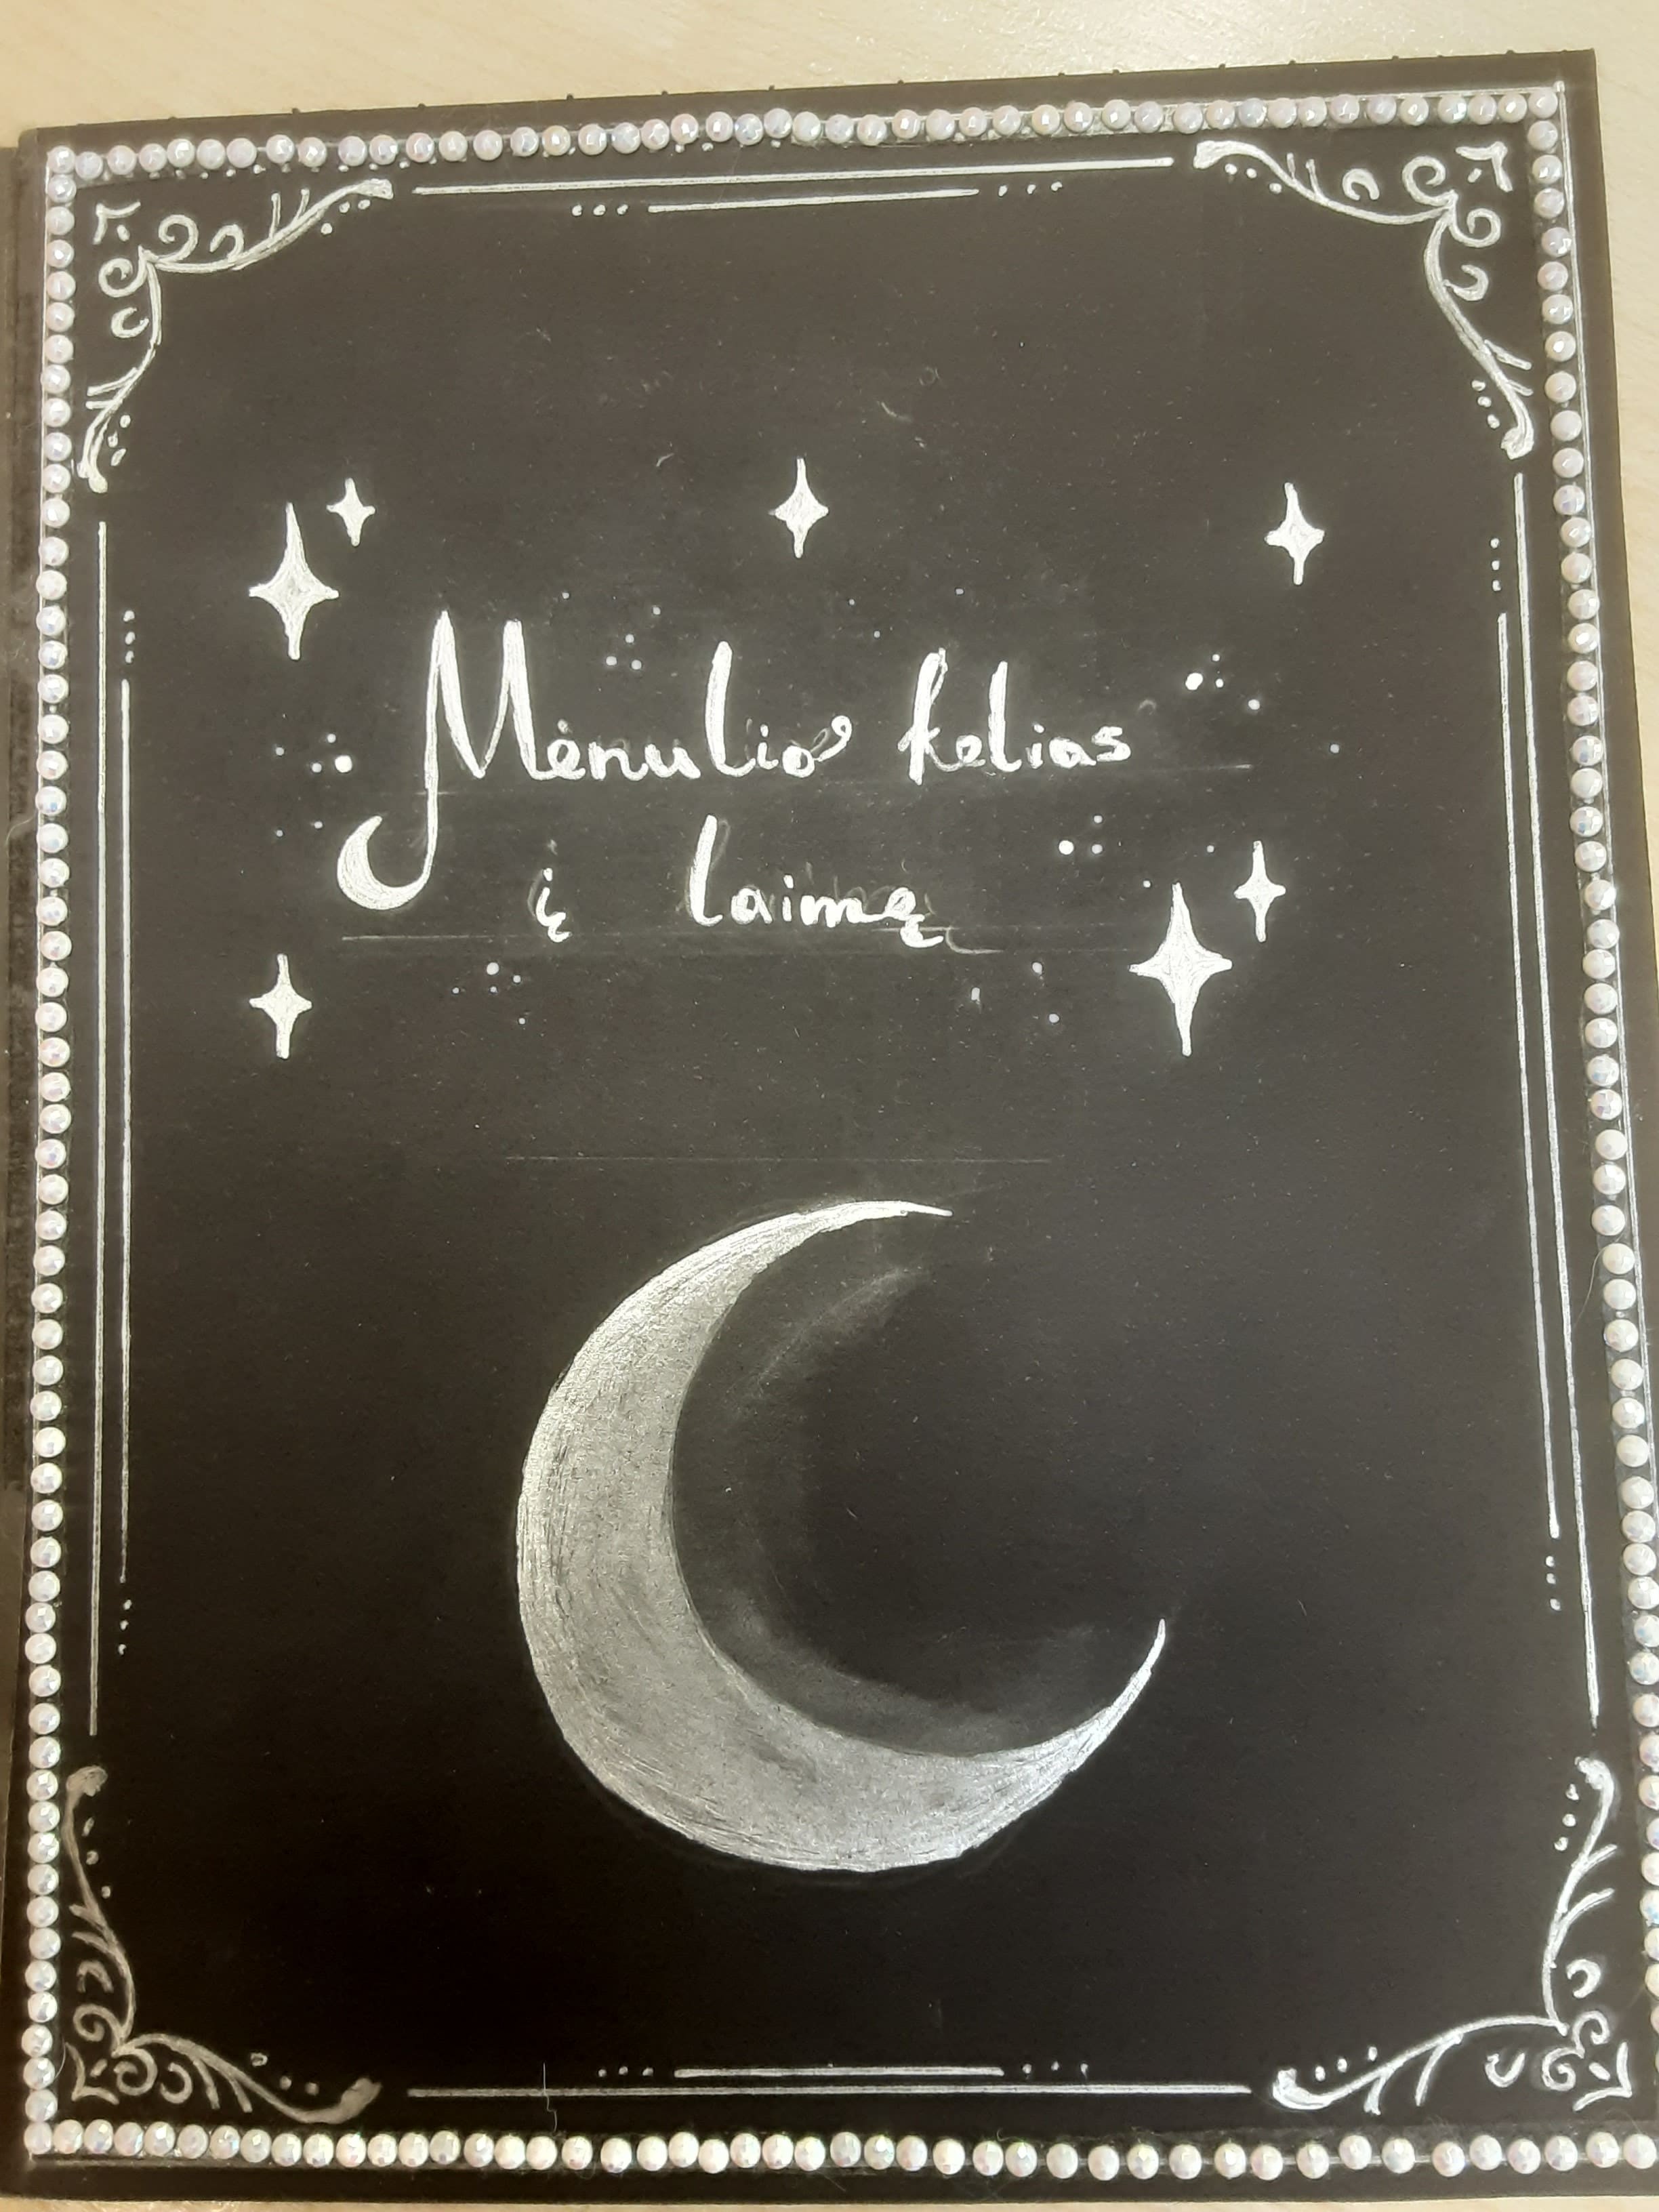 Mėnulio kelias
į laimę